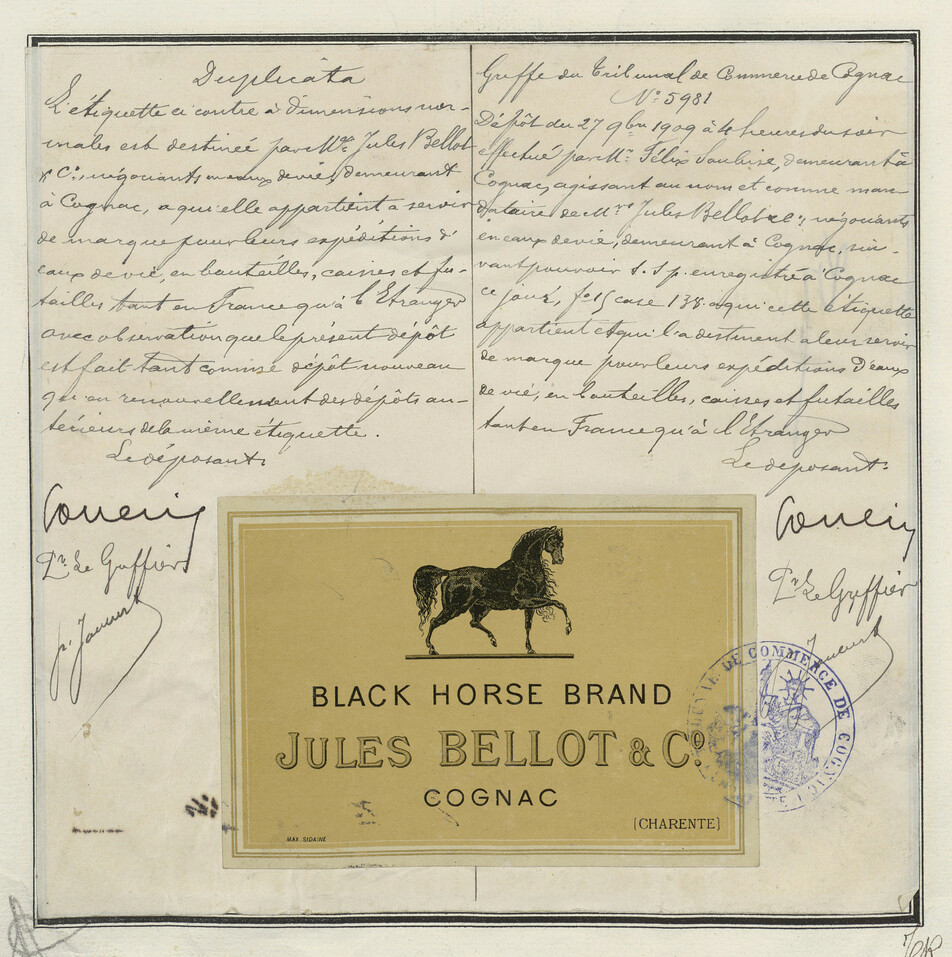 Duplicata
L'étiquette ci contre à dimensions nor-
males est destinée par Mrs Jules Bellot
& Cie, négociants en eaux de vie, demeurant
à Cognac, a qui elle appartient a servir
de marque pour leurs expéditions d'
eaux de vie, en bouteilles, caisses et fu-
tailles tant en France qu'à l'Etranger
avec observation que le présent dépôt
est fait tant comme dépôt nouveau
qu'en renouvellement des dépôts an-
térieurs de la même étiquette.
Le déposant.
Pr Le Greffier
Greffe du Tribunal de Commerce de Cognac
No 5981
Dépôt du 27 9bre 1909 à 4 heures du soir
effectué par Mr Félix Soubise, demeurant à
Cognac, agissant au nom et comme man-
dataire de Mrs Jules Bellot & Cie, négociants
en eaux de vie, demeurant à Cognac, sui-
vant pouvoir s.s.p. enregistré à Cognac
ce jour, fo 15 case 138 a qui cette étiquette
appartient et qui l'a destinent a leur servir
de marque pour leurs expéditions d'eaux
de vie, en bouteilles, caisses et futailles
tant en France qu'à l'Etranger
Le déposant.
Pr Le Greffier
BLACK HORSE BRAND
JULES BELLOT & Co.
COGNAC
(CHARENTE)
MAX. SIDAINE
TRIBUNAL DE COMMERCE DE COGNAC